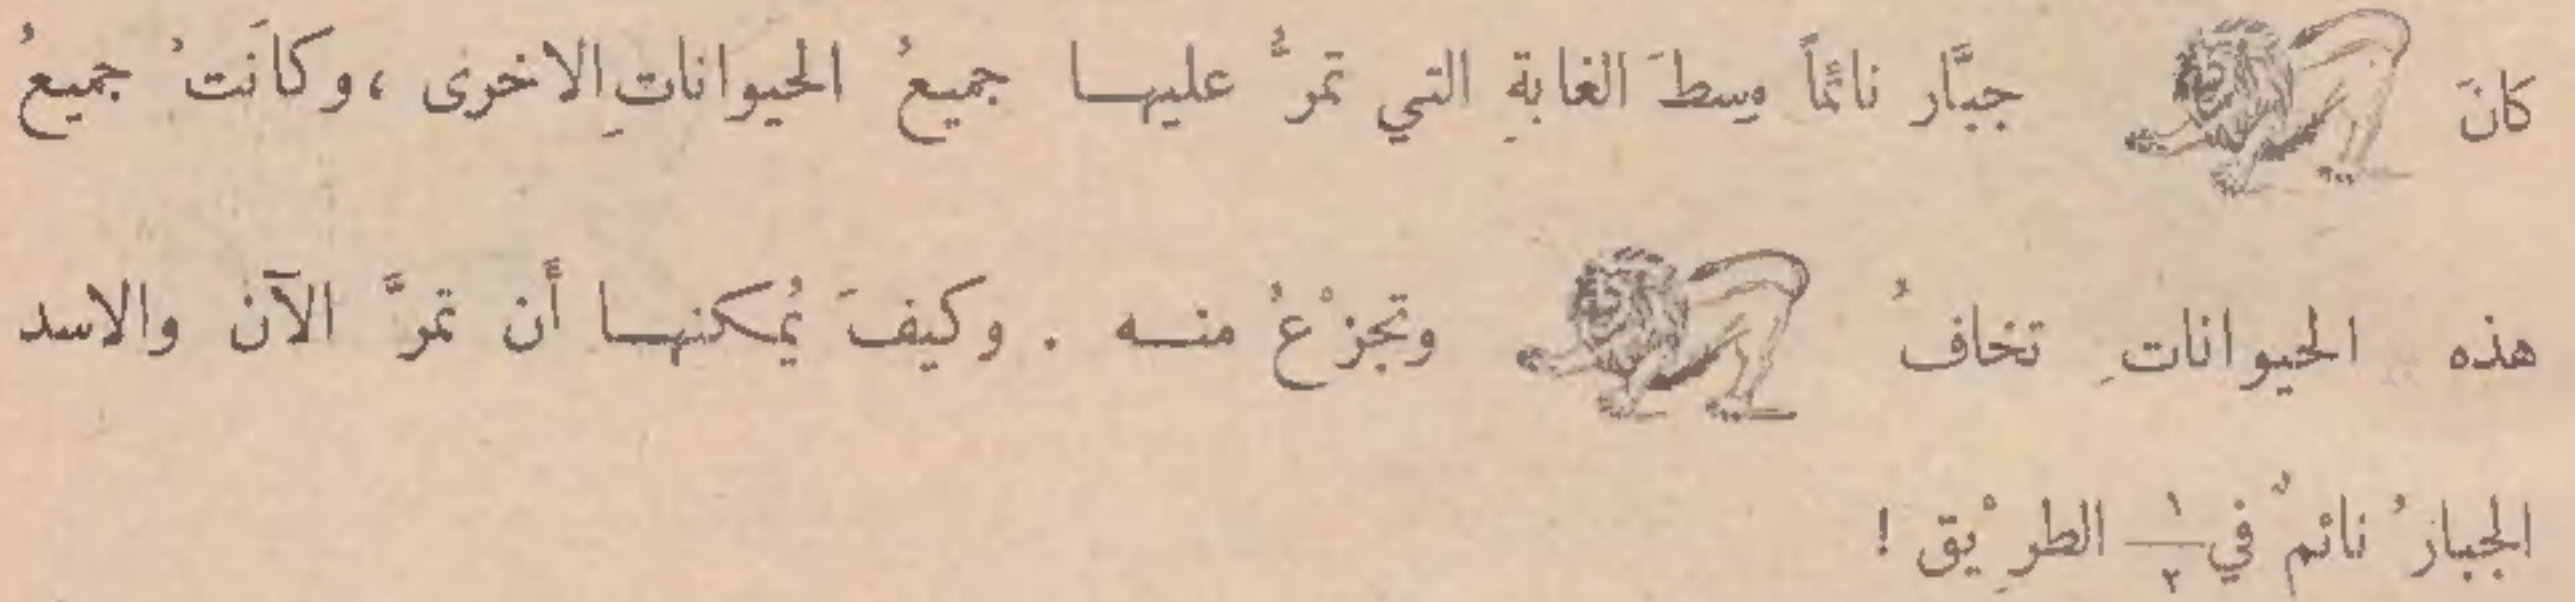 كانَ جبَّار نائماً وسطَ الغابةِ التي تمرُّ عليهـا جميعُ الحيواناتِ الاخرى ، وكانَتْ جميعُ
هذه الحيواناتِ تخافُ وتجزْعُ منـه . وكيفَ يُمكنهـا أَن تمرَّ الآن والاسد
الجبارُ نائمٌ في ١/٢ الطرِيْق !